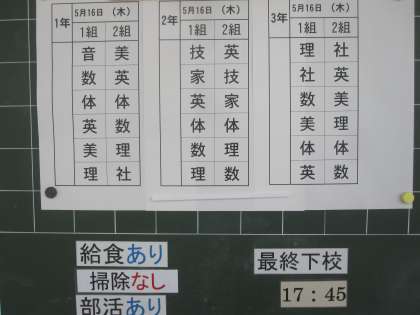 1年 5月16日 (木)
1組 2組
音 美
数 英
体 体
英 数
美 理
理 社
2年 5月16日 (木)
1組 2組
技 英
家 技
英 家
体 体
数 理
理 数
3年 5月16日 (木)
1組 2組
理 社
社 英
数 美
美 理
体 体
英 数
給食あり
掃除なし
部活あり
最終下校
17:45